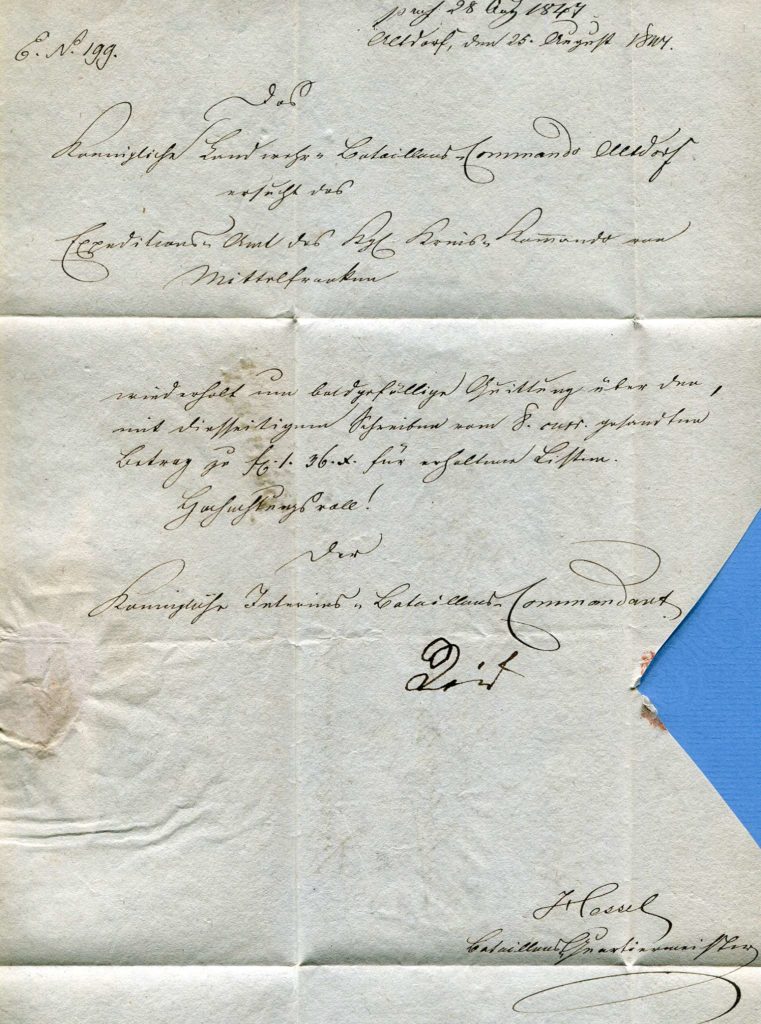 E. N. 199.
präs 28 Aug 1847.
Altdorf, den 25. August 1847.
Das
Koenigliche Landwehr-Bataillons-Commando Altdorf
ersucht das
Expeditions-Amt des Kgl. Kreis-Kommando von
Mittelfranken
wiederholt um baldgefällige Quittung über den,
mit diesseitigem Schreiben vom 8. curr. gesandten
Betrag zu fl. 1. 36. x. für erhaltene Listen.
Hochachtungsvoll!
Der
Koenigliche Interims-Bataillons-Commandant.
Hessel
Bataillons-Quartiermeister